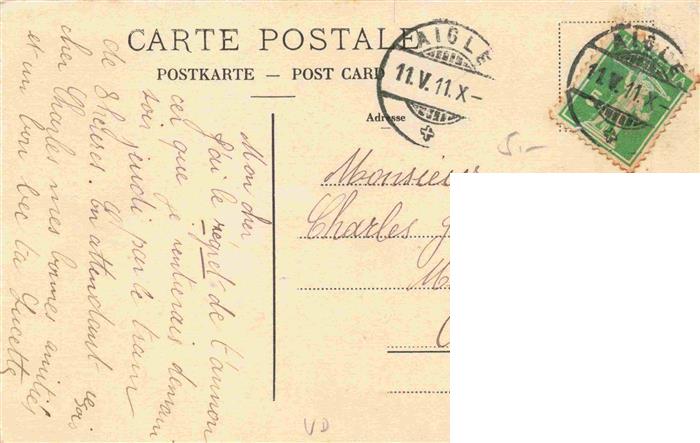 CARTE POSTALE
POSTKARTE — POST CARD
Adresse
AIGLE
11.V.11.X–
AIGLE
11.V.11.X–
5
5.–
Monsieur
Charles
Mon cher
J'ai le regret de t'annon
cer que je rentierais demain
soir jeudi par le train
de 8 heures. En attendant reçois
cher Charles mes bonnes amitiés
et un bon bec ta Lucette
VD